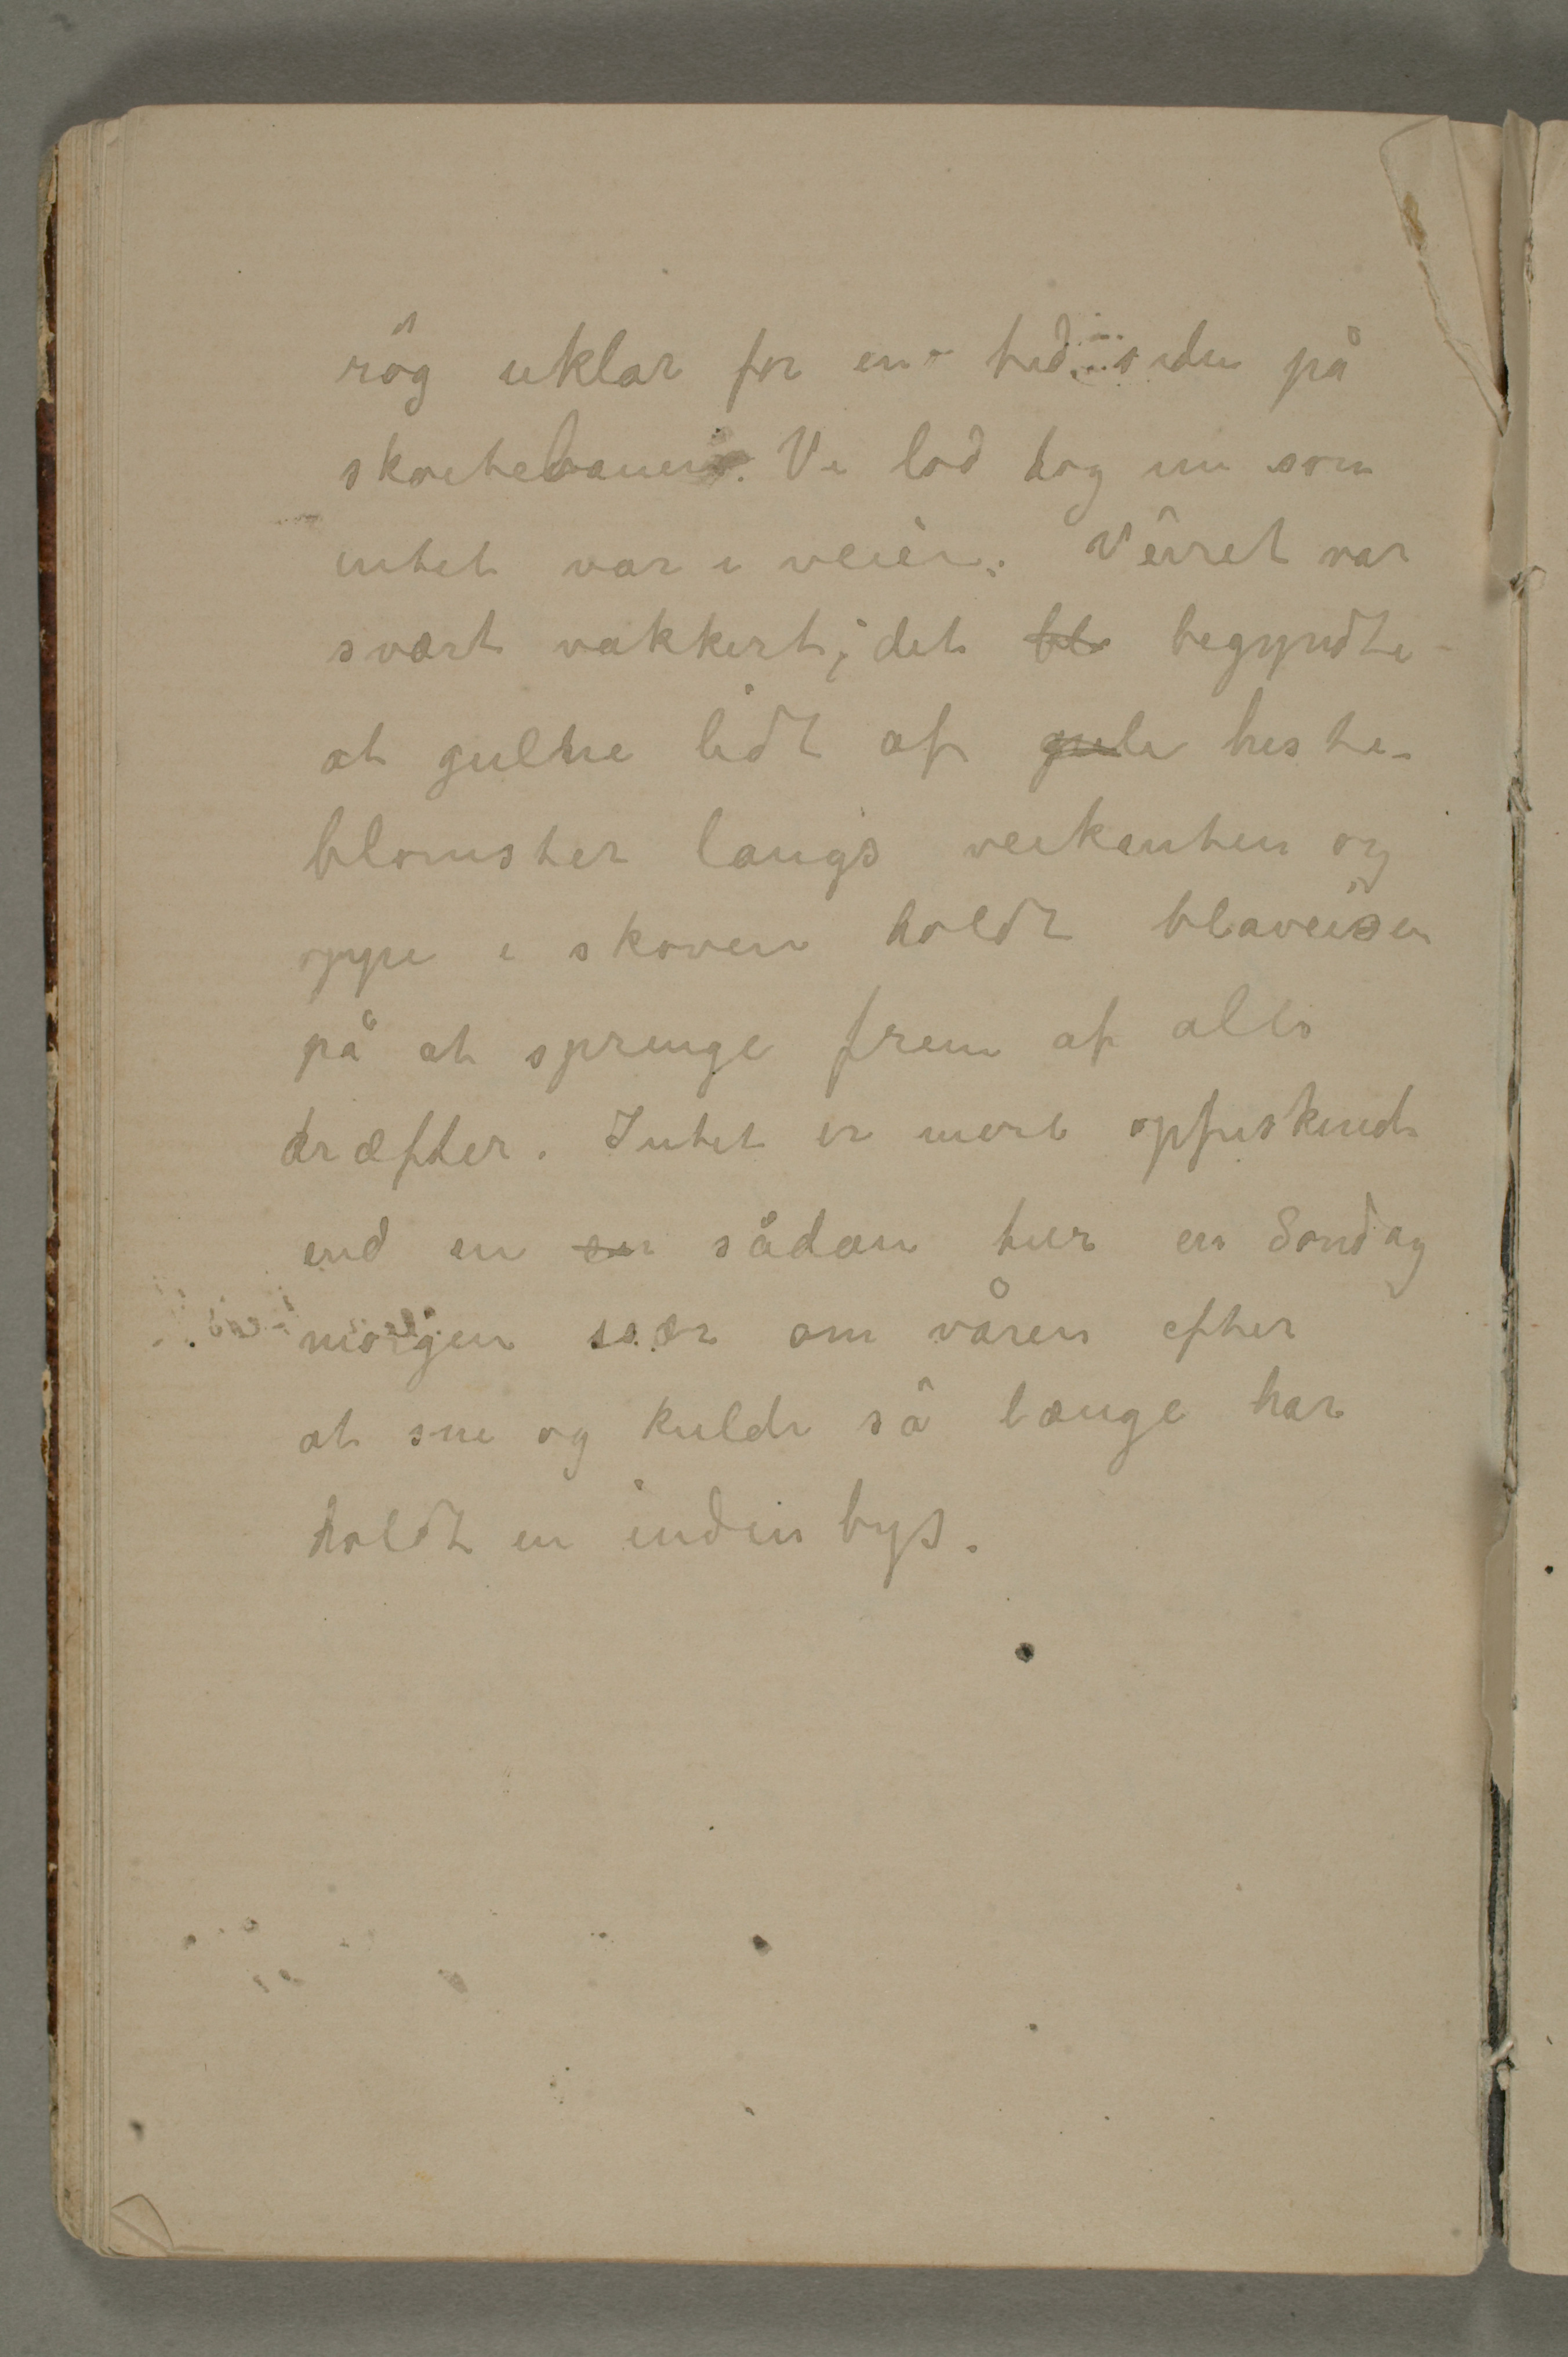 rög uklar for en tid siden på
skøitebanen. Vi lod dog nu som
intet var i veien. Veiret var
svært vakkert; det ble begyndte
at gulne lidt af gule heste-
blomster langs veikanten og
oppe i skoven holdt blaveisen
på at springe frem af alle
kræfter. Intet er mere opfriskende
end en en sådan tur en Søndag
morgen især om våren efter
at sne og kulde så længe har
holdt en inden bys.